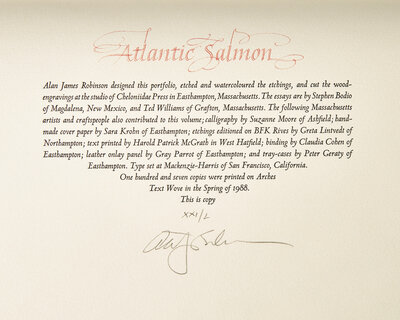 Atlantic Salmon
Alan James Robinson designed this portfolio, etched and watercoloured the etchings, and cut the wood-
engravings at the studio of Cheloniidae Press in Easthampton, Massachusetts. The essays are by Stephen Bodio
of Magdalena, New Mexico, and Ted Williams of Grafton, Massachusetts. The following Massachusetts
artists and craftspeople also contributed to this volume; calligraphy by Suzanne Moore of Ashfield; hand-
made cover paper by Sara Krohn of Easthampton; etchings editioned on BFK Rives by Greta Lintvedt of
Northampton; text printed by Harold Patrick McGrath in West Hatfield; binding by Claudia Cohen of
Easthampton; leather onlay panel by Gray Parrot of Easthampton; and tray-cases by Peter Geraty of
Easthampton. Type set at Mackenzie-Harris of San Francisco, California.
One hundred and seven copies were printed on Arches
Text Wove in the Spring of 1988.
This is copy
XXI/L